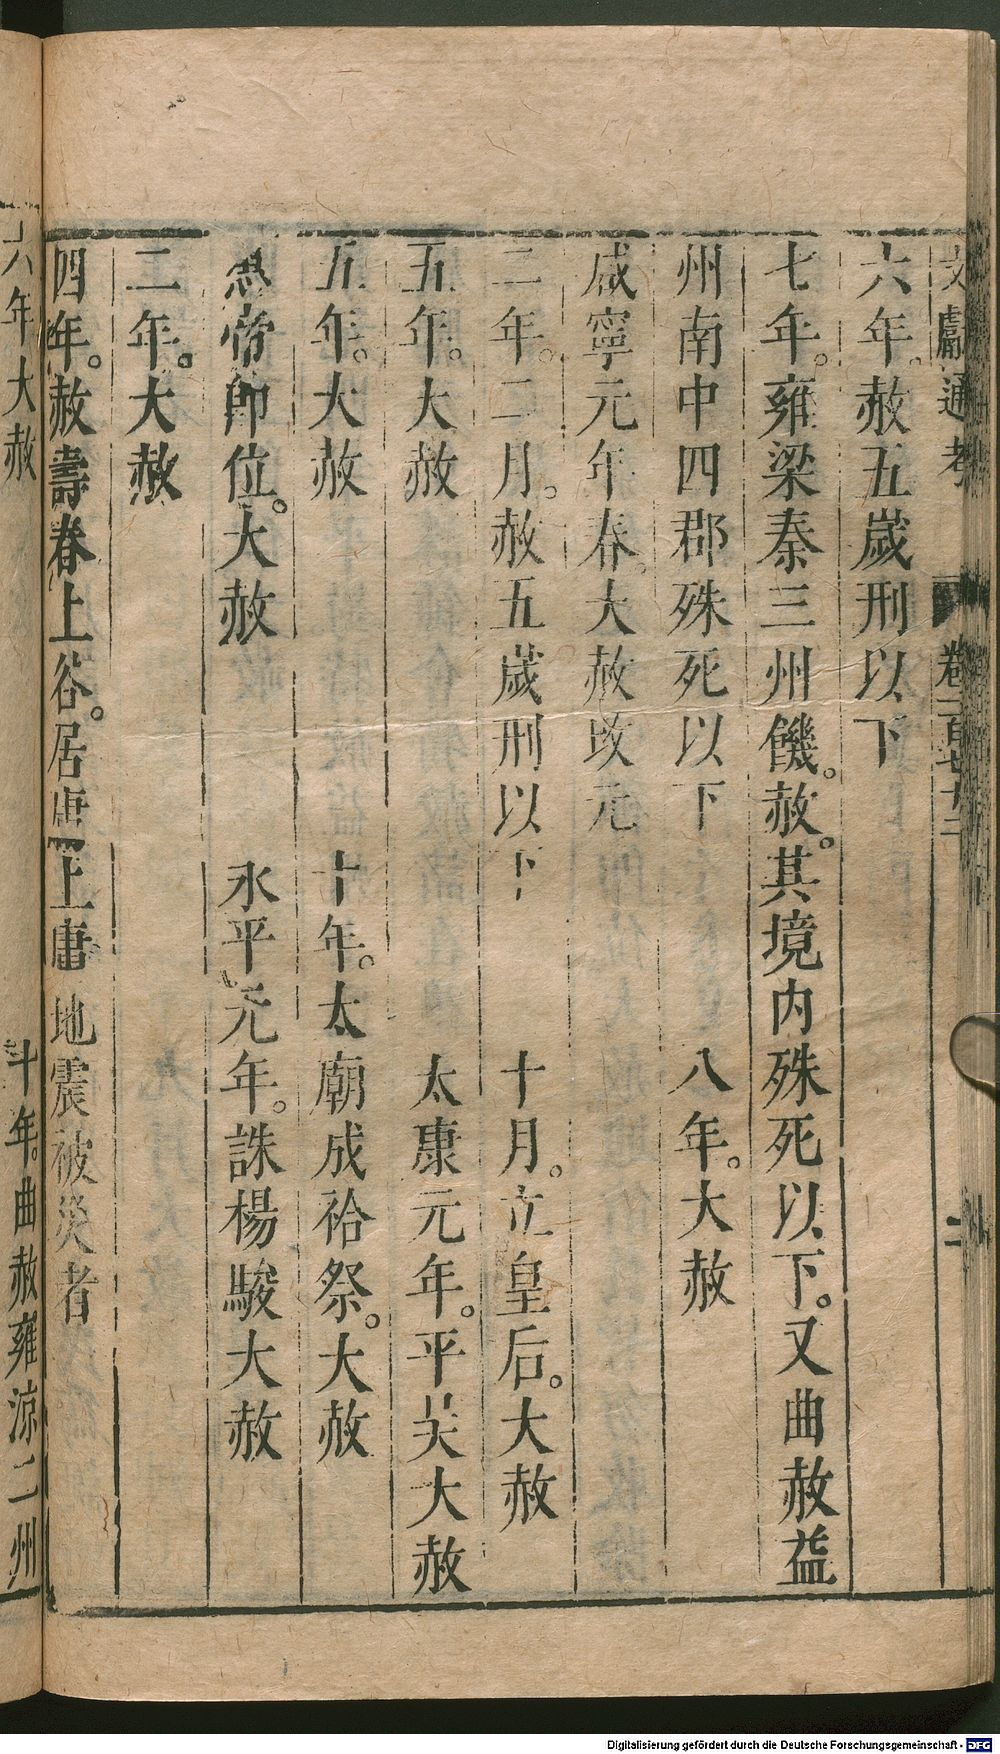 文獻通考 卷一百七十二 二
六年。赦五歲刑以下
七年。雍梁秦三州饑。赦。其境內殊死以下。又曲赦益
州南中四郡殊死以下 八年。大赦
咸寧元年春。大赦改元
二年。二月。赦五歲刑以下 十月。立皇后。大赦
五年。大赦 太康元年。平吴大赦
五年。大赦 十年。太廟成祫祭。大赦
惠帝即位。大赦 永平元年。誅楊駿大赦
二年。大赦
四年。赦壽春上谷。居庸上庸地震被災者
六年大赦 十年。曲赦雍涼二州
Digitalisierung gefördert durch die Deutsche Forschungsgemeinschaft - DFG